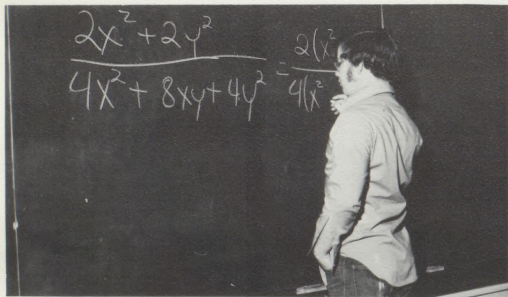 2x² + 2y² / 4x² + 8xy + 4y² = 2(x² / 4(x²